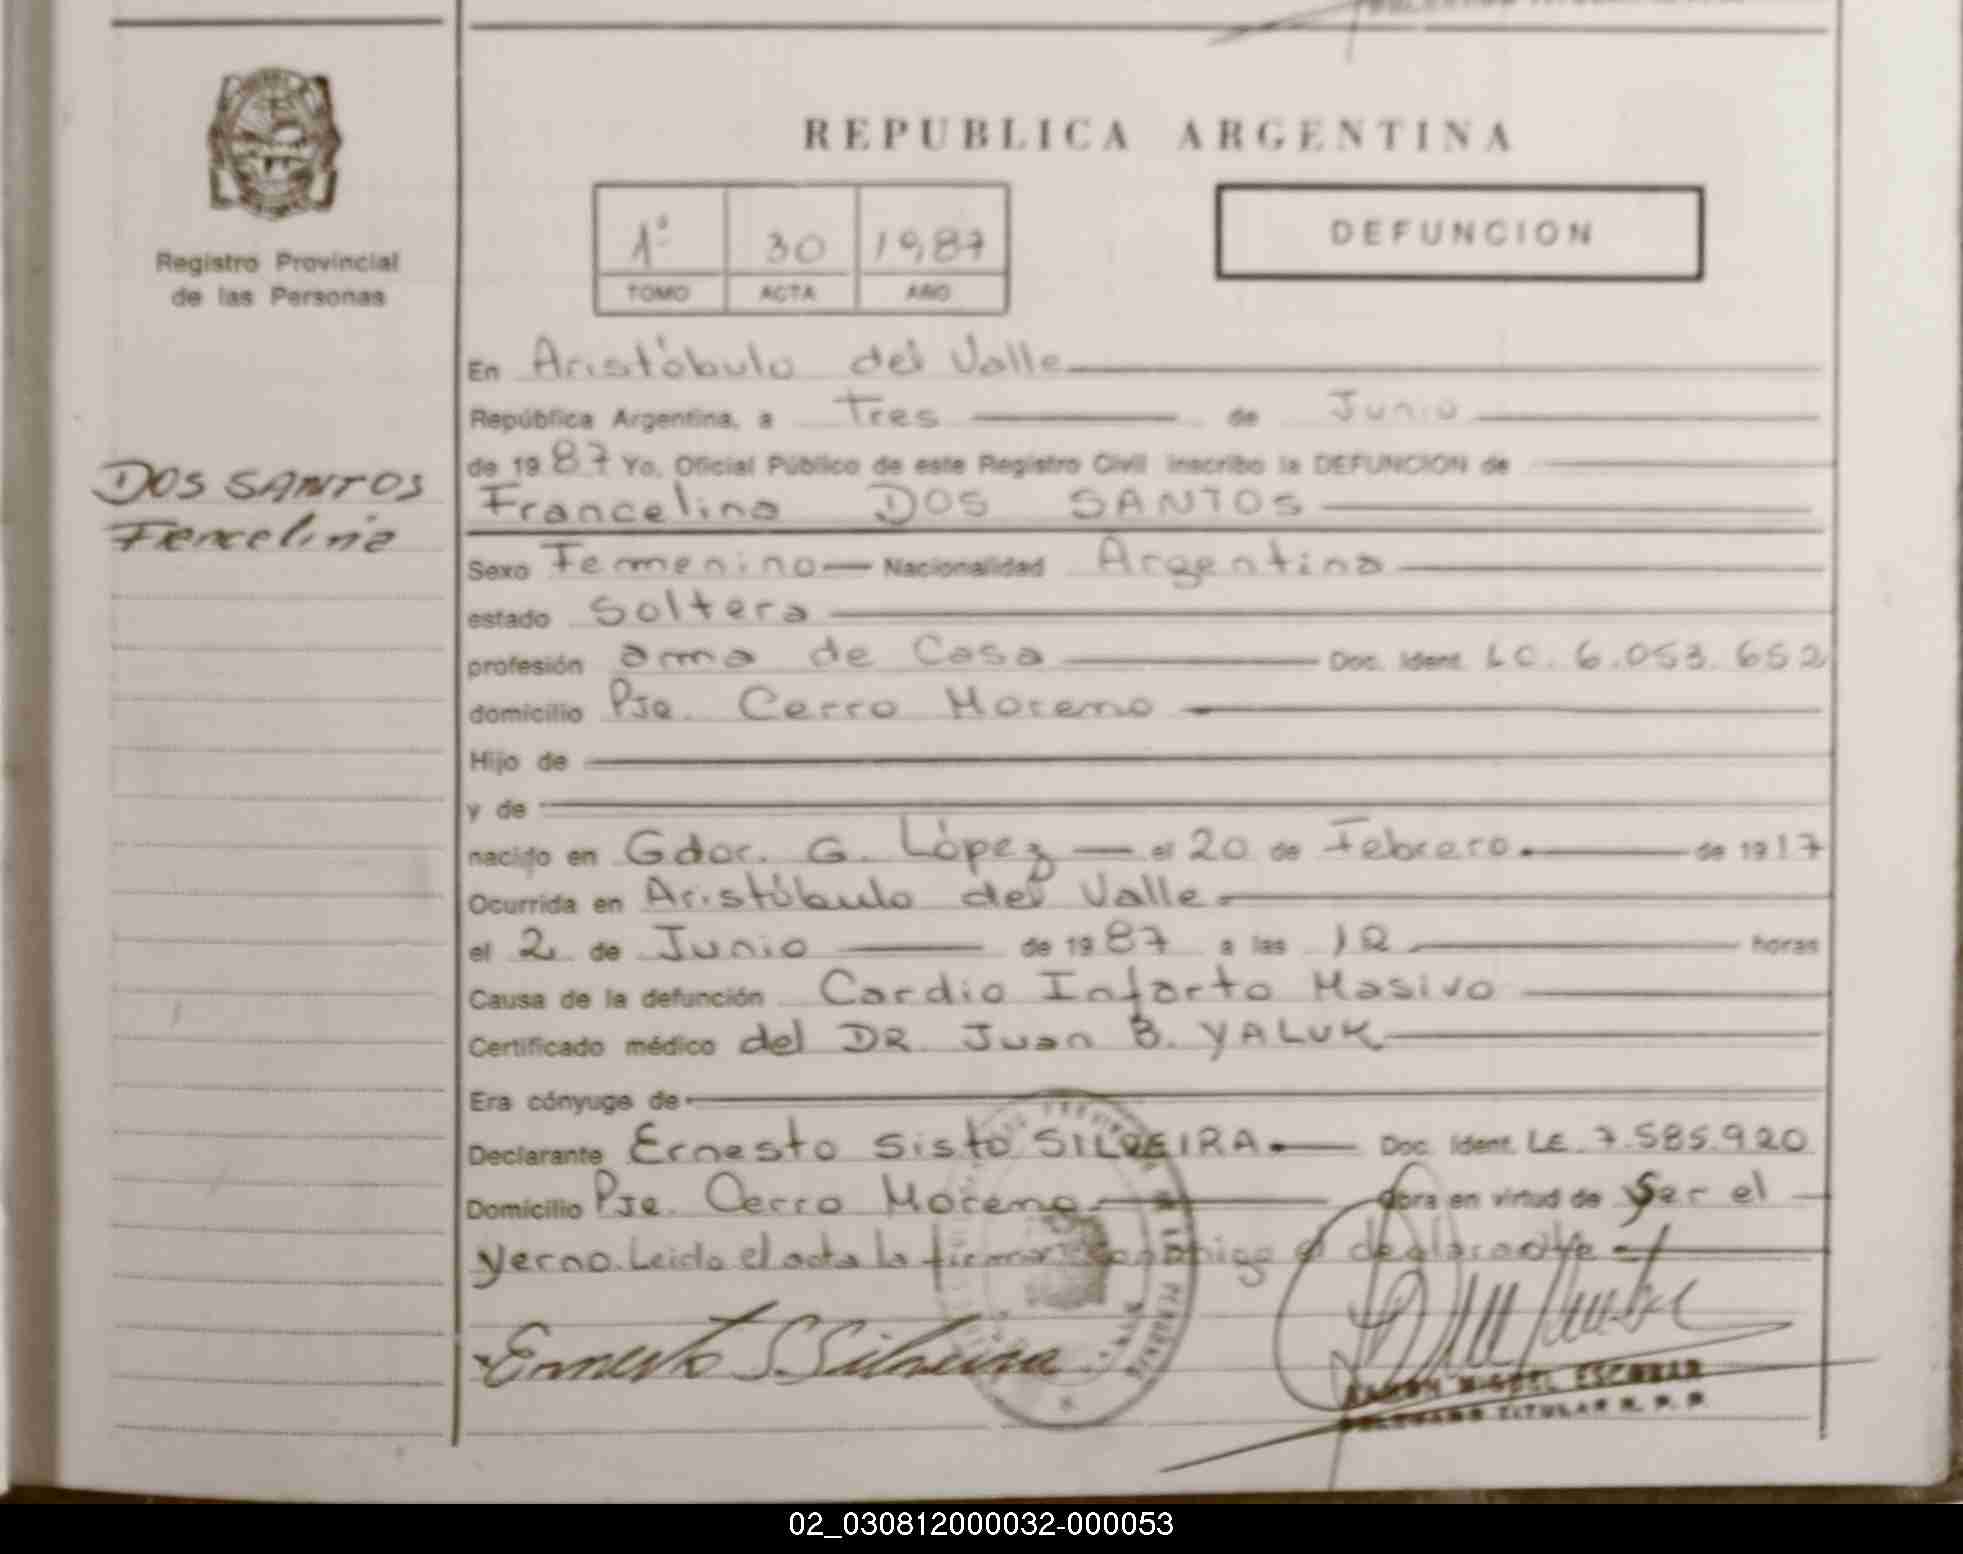 REPUBLICA ARGENTINA
Registro Provincial
de las Personas
1º 30 1987
TOMO ACTA AÑO
DEFUNCION
DOS SANTOS
Francelina
En Aristóbulo del Valle
República Argentina, a Tres de Junio
de 1987 Yo, Oficial Público de este Registro Civil inscribo la DEFUNCION de
Francelina DOS SANTOS
Sexo Femenino Nacionalidad Argentina
estado Soltera
profesión ama de Casa Doc. Ident. LC. 6.053.652
domicilio Pje. Cerro Moreno
Hijo de
y de
nacido en Gdor. G. López el 20 de Febrero. de 1917
Ocurrida en Aristóbulo del Valle
el 2 de Junio de 1987 a las 12 horas
Causa de la defunción Cardio Infarto Masivo
Certificado médico del DR. Juan B. YALUK
Era cónyuge de
Declarante Ernesto Sisto SILVEIRA Doc. Ident. LE. 7.585.920
Domicilio Pje. Cerro Moreno obra en virtud de Ser el
yerno. Leida el acta la firma conmigo el declarante
Ernesto S. Silveira
RAMON MIGUEL ESCOBAR
DELEGADO TITULAR R. P. P.
02_030812000032-000053